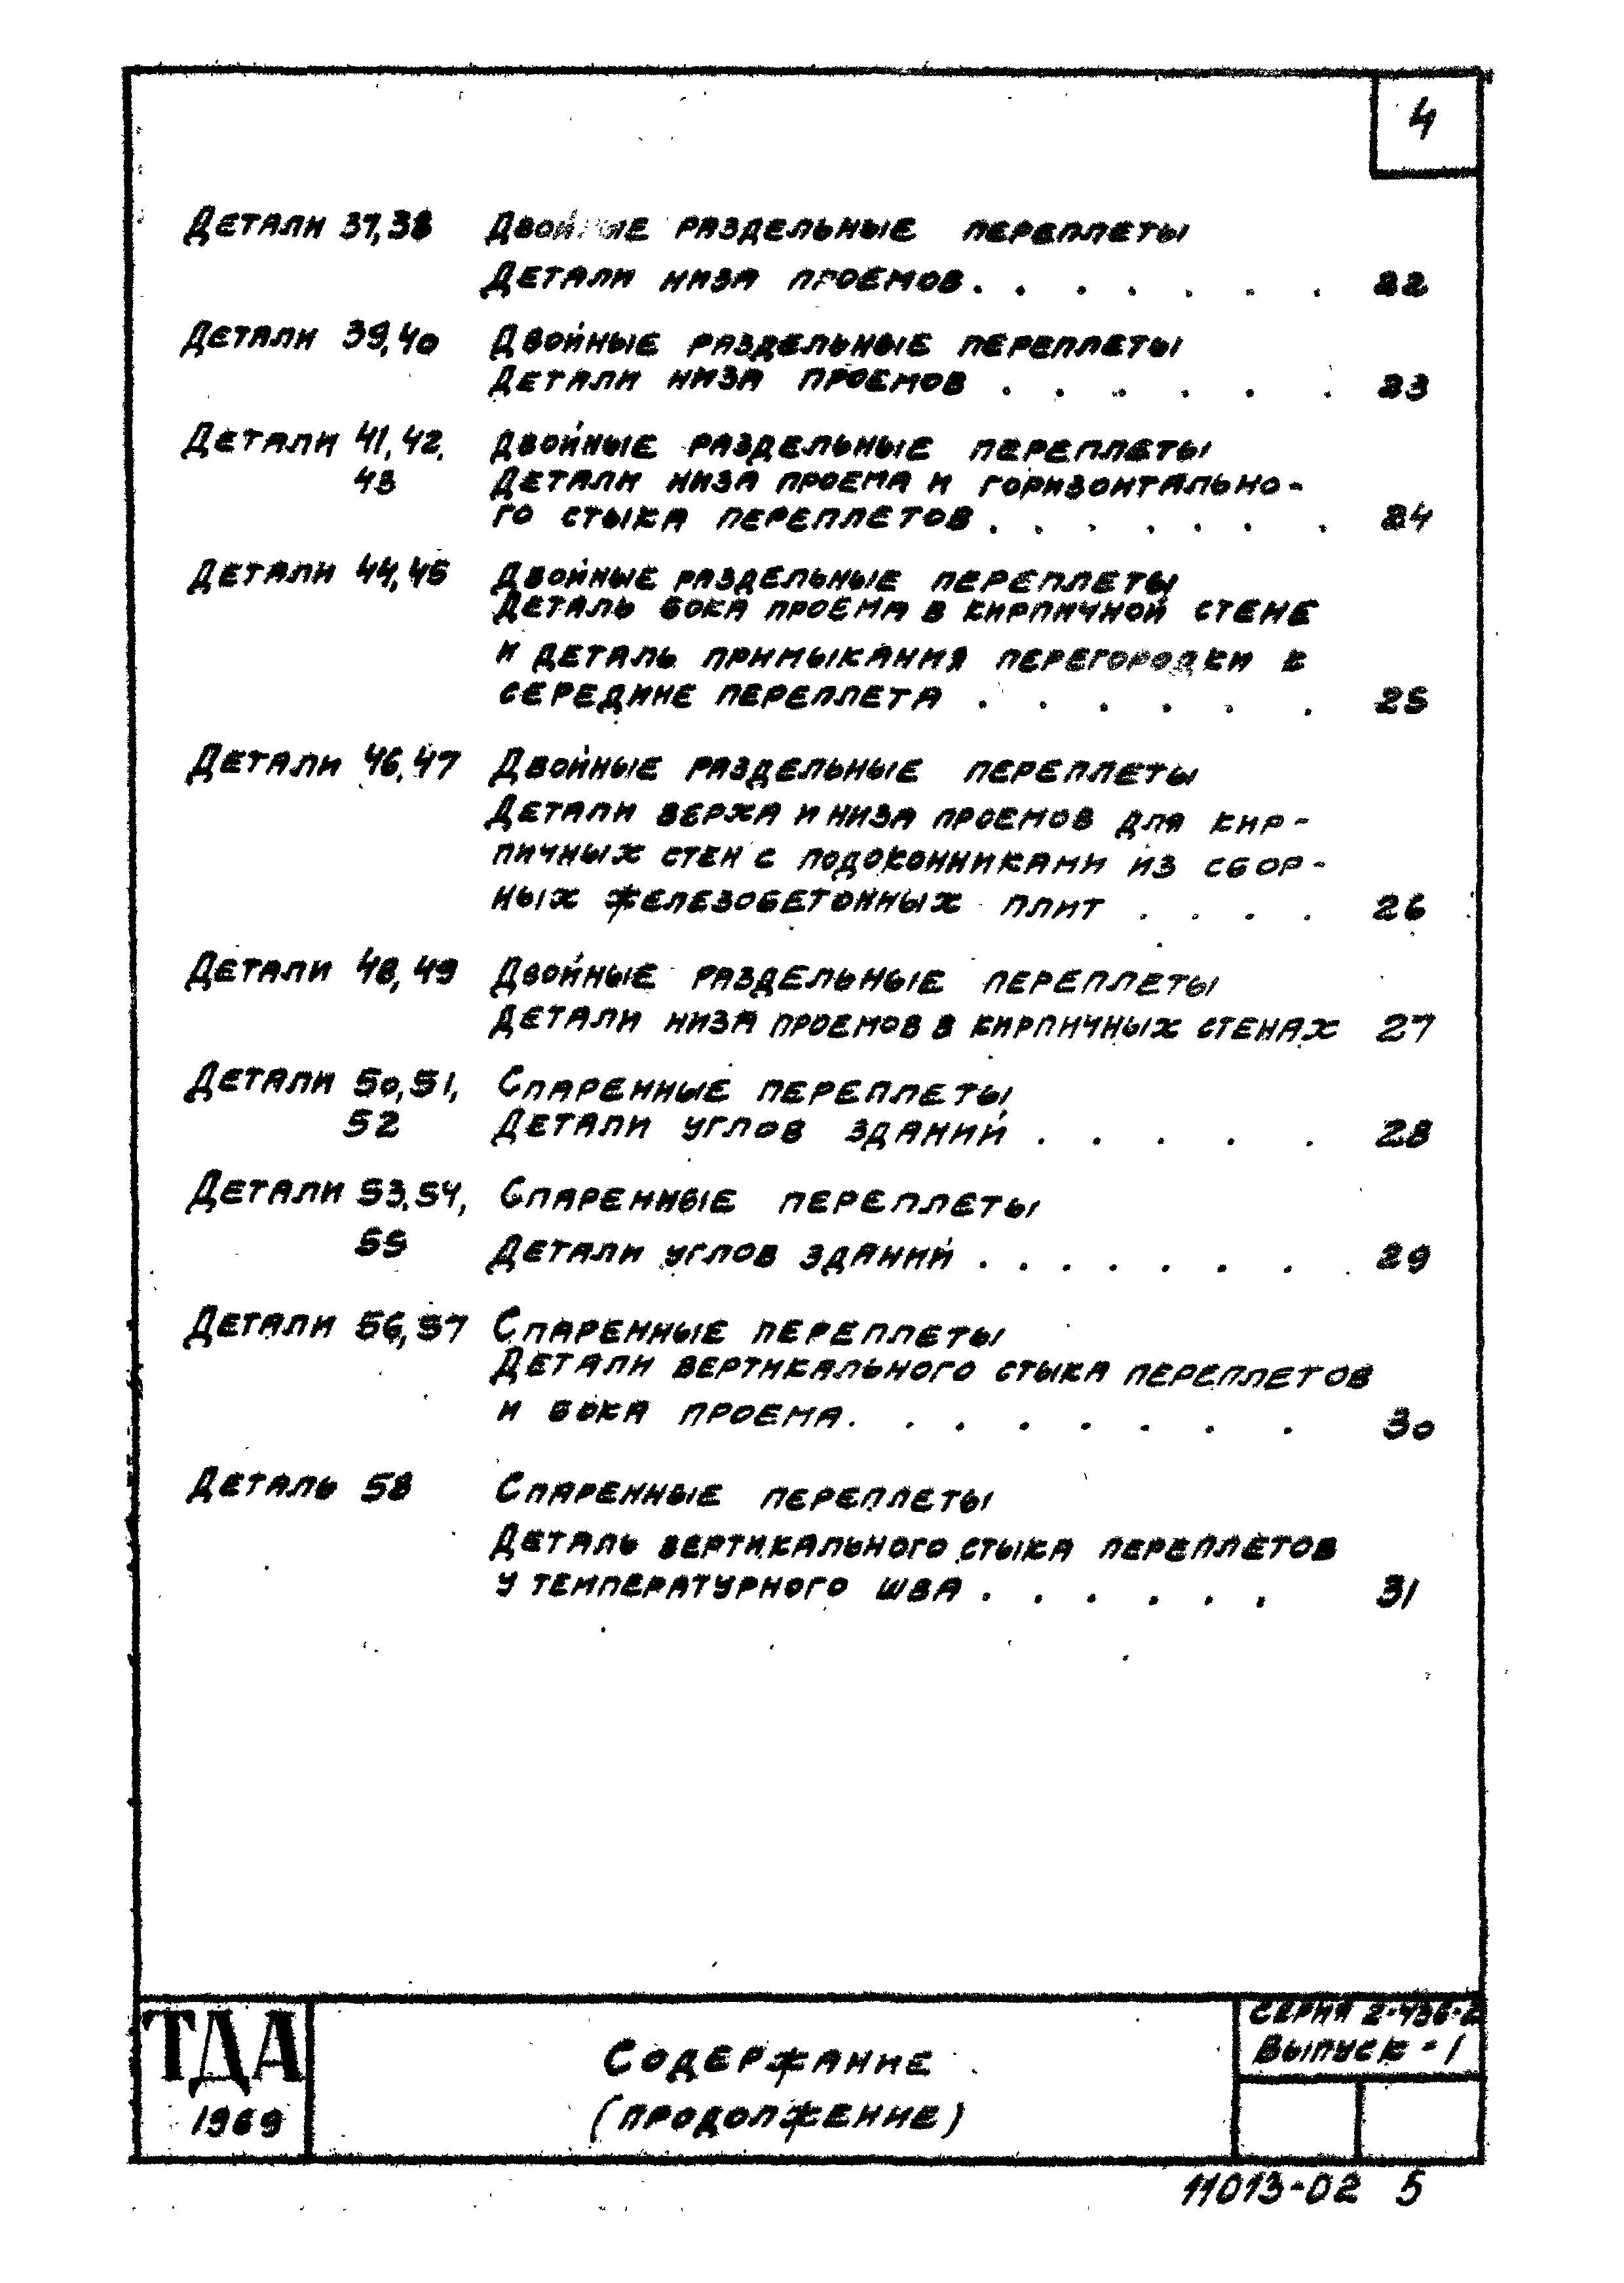 4
Детали 37,38 Двойные раздельные переплеты
Детали низа проемов . . . . . . . 22
Детали 39,40 Двойные раздельные переплеты
Детали низа проемов . . . . . . 23
Детали 41,42, Двойные раздельные переплеты
43 Детали низа проема и горизонтально-
го стыка переплетов . . . . . . . 24
Детали 44,45 Двойные раздельные переплеты
Деталь бока проема в кирпичной стене
и деталь примыкания перегородки к
середине переплета . . . . . . 25
Детали 46,47 Двойные раздельные переплеты
Детали верха и низа проемов для кир-
пичных стен с подоконниками из сбор-
ных железобетонных плит . . . . 26
Детали 48,49 Двойные раздельные переплеты
Детали низа проемов в кирпичных стенах 27
Детали 50,51, Спаренные переплеты
52 Детали углов зданий . . . . . 28
Детали 53,54, Спаренные переплеты
55 Детали углов зданий . . . . . . . 29
Детали 56,57 Спаренные переплеты
Детали вертикального стыка переплетов
и бока проема . . . . . . . . 30
Деталь 58 Спаренные переплеты
Деталь вертикального стыка переплетов
у температурного шва . . . . . . 31
ТДА
1969
Содержание
(продолжение)
Серия 2.436-2
Выпуск-1
11013-02 5